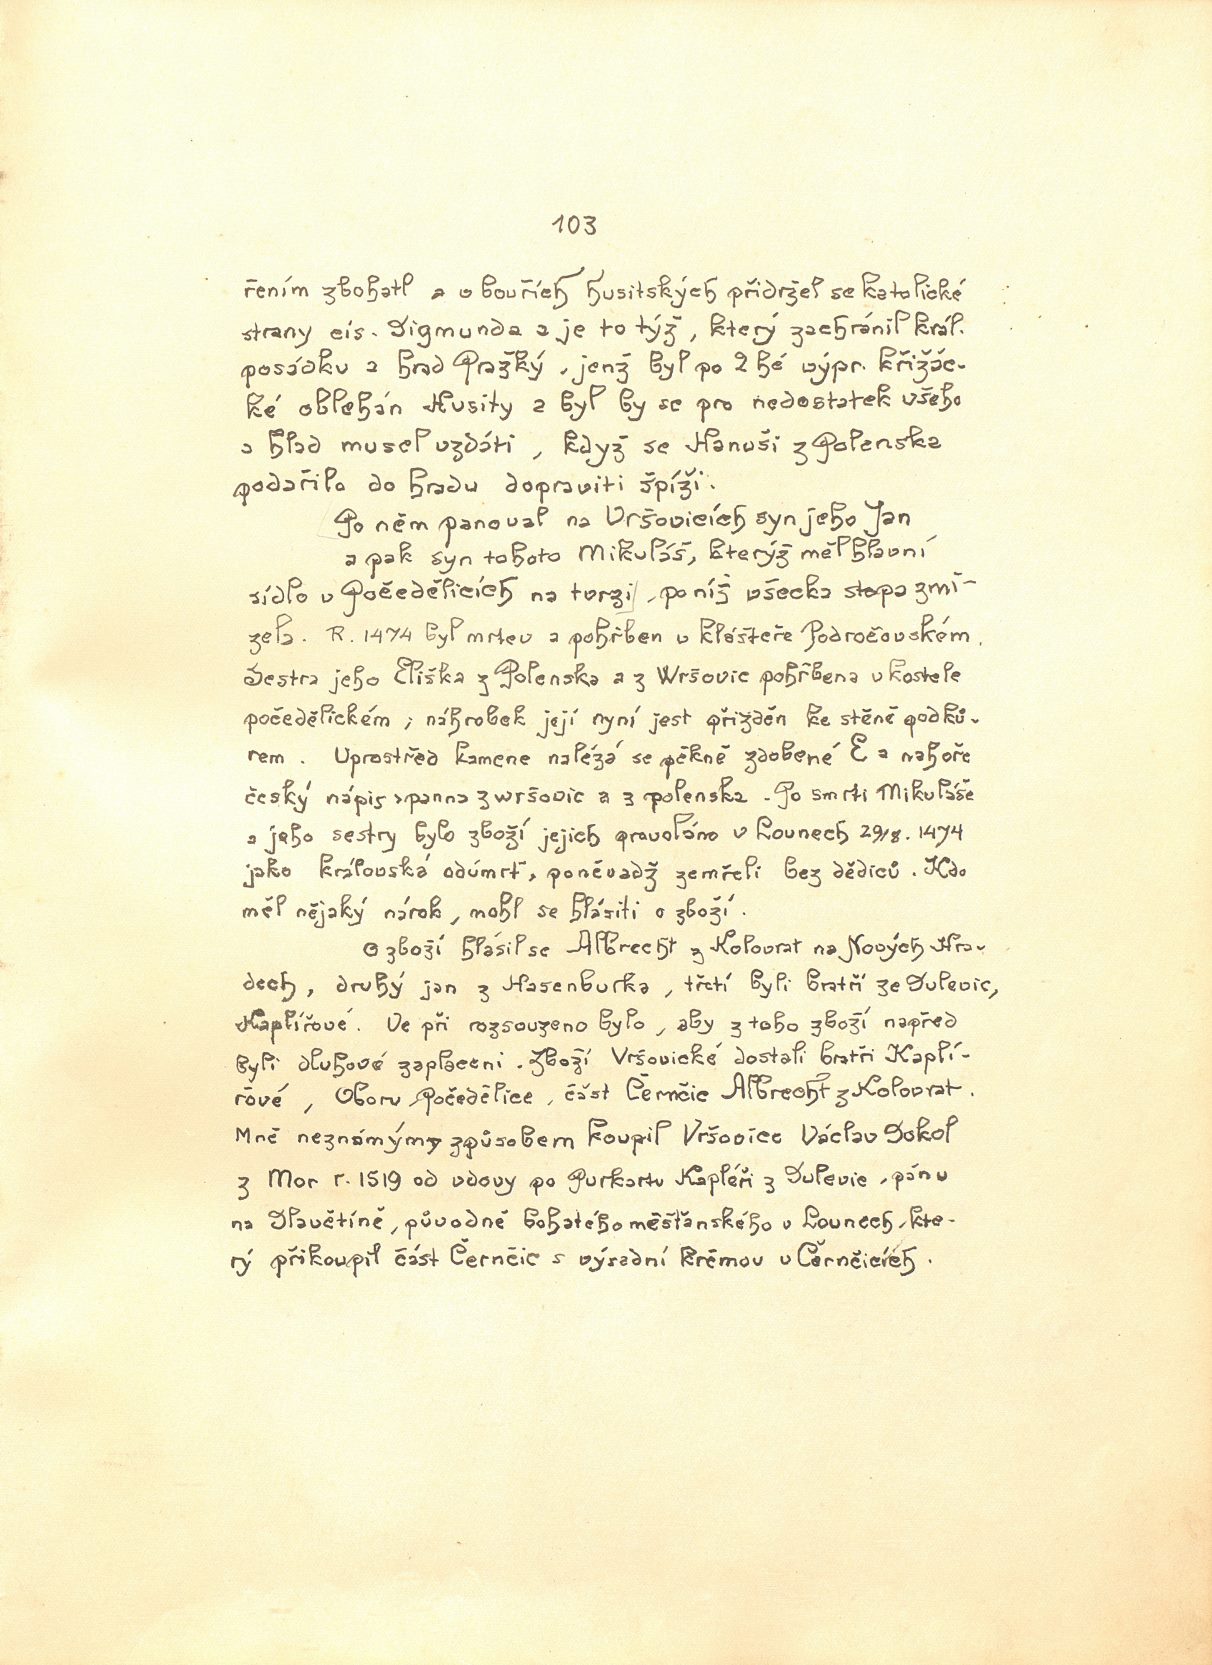 103
řením zbohatl a v bouřích husitských přidržel se katolické
strany cís. Sigmunda a je to týž, který zachránil král.
posádku a hrad Pražký, jenž byl po 2 hé výpr. křižác-
ké oblehán Husity a byl by se pro nedostatek všeho
a hlad musel vzdáti, když se Hanuši z Polenska
podařilo do hradu dopraviti špíži.
Po něm panoval na Vršovicích syn jeho Jan
a pak syn tohoto Mikuláš, kterýž měl hlavní
sídlo v Počedělicích na tvrzi, po níž všecka stopa zmi-
zela. R. 1474 byl mrtev a pohřben v klášteře Področovském.
Sestra jeho Eliška z Polenska a z Wršovic pohřbena v kostele
počedělickém; náhrobek její nyní jest přizděn ke stěně pod ků-
rem. Uprostřed kamene nalézá se pěkně zdobené E a nahoře
český nápis „panna z wršovic a z polenska. Po smrti Mikuláše
a jeho sestry bylo zboží jejich provoláno v Lounech 29/8. 1474
jako královská odúmrť, poněvadž zemřeli bez dědiců. Kdo
měl nějaký nárok, mohl se hlásiti o zboží.
O zboží hlásil se Albrecht z Kolovrat na Nových Hra-
dech, druhý jan z Hasenburka, třetí byli bratří ze Sulevic,
Kaplířové. Ve při rozsouzeno bylo, aby z toho zboží napřed
byli dluhové zaplaceni. Zboží Vršovické dostali bratři Kaplí-
řové, Oboru, Počedělice, část Černčic Albrecht z Kolovrat.
Mně neznámýmy způsobem koupil Vršovice Václav Sokol
z Mor r. 1519 od vdovy po Purkartu Kapléři z Sulevic, pánu
na Slavětíně, původně bohatého měšťanského v Lounech, kte-
rý přikoupil část Černčic s výsadní krčmou v Černčicích.